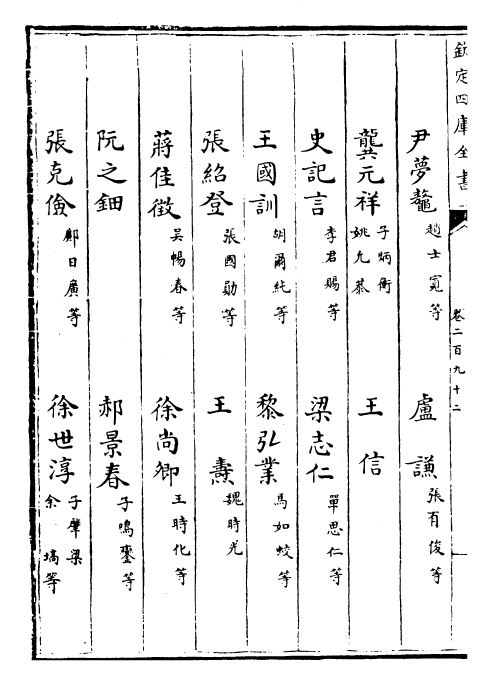 欽定四庫全書
卷二百九十二
尹夢鰲 趙士寛等 盧謙 張有俊等
龔元祥 子炳衡 姚允恭 王信
史記言 李君賜等 梁志仁 單思仁等
王國訓 胡爾純等 黎弘業 馬如蛟等
張紹登 張國勛等 王燾 魏時光
蔣佳徵 吳暢春等 徐尚卿 王時化等
阮之鈿 郝景春 子鳴鑾等
張克儉 鄺日廣等 徐世淳 子肇梁 余塙等